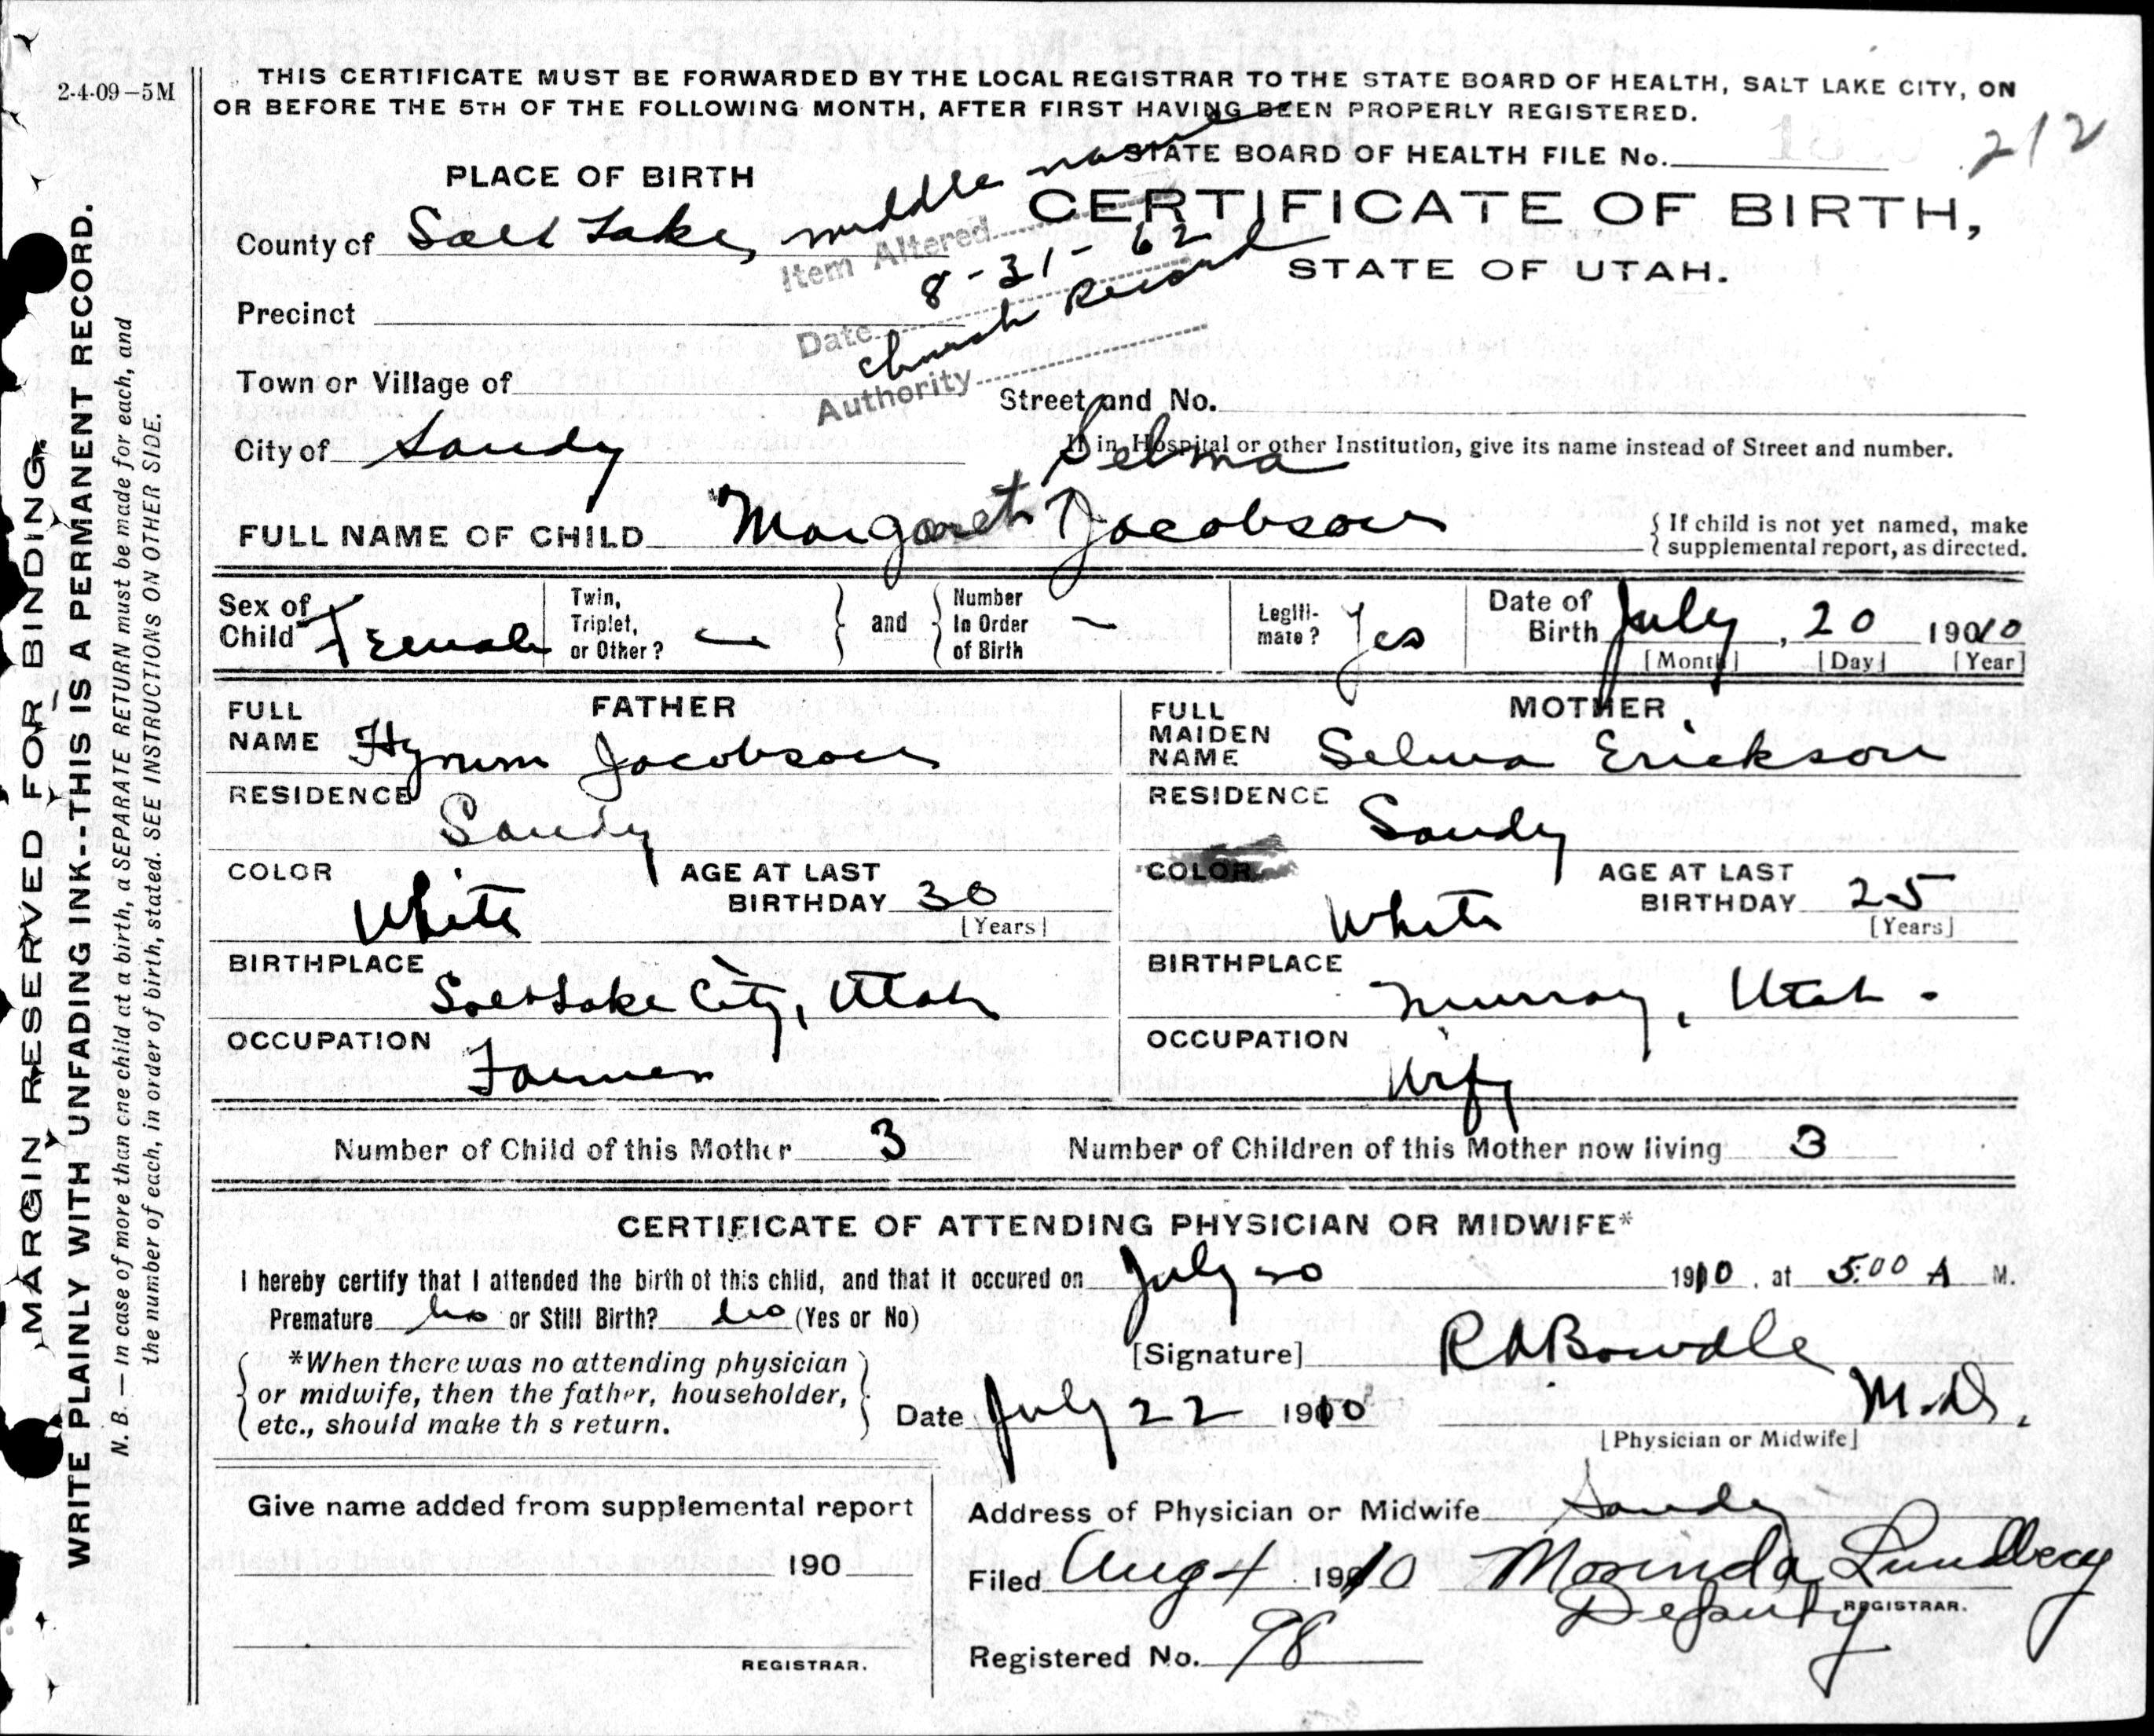 2-4-09-5M
THIS CERTIFICATE MUST BE FORWARDED BY THE LOCAL REGISTRAR TO THE STATE BOARD OF HEALTH, SALT LAKE CITY, ON
OR BEFORE THE 5TH OF THE FOLLOWING MONTH, AFTER FIRST HAVING BEEN PROPERLY REGISTERED.
STATE BOARD OF HEALTH FILE No. 212
PLACE OF BIRTH
CERTIFICATE OF BIRTH,
STATE OF UTAH.
County of Salt Lake,
Item Altered middle name
Date 8-31-62
Authority Church Record
Precinct
Town or Village of
Street and No.
City of Sandy
If in Hospital or other Institution, give its name instead of Street and number.
Selma
FULL NAME OF CHILD Margaret Jacobson
{ If child is not yet named, make
supplemental report, as directed.
Sex of Child Female
Twin, Triplet, or Other? —
and
Number In Order of Birth —
Legiti-mate? Yes
Date of Birth July, 20 1910
[Month] [Day] [Year]
FATHER
FULL NAME Hyrum Jacobson
RESIDENCE Sandy
COLOR White
AGE AT LAST BIRTHDAY 30
[Years]
BIRTHPLACE Salt Lake City, Utah
OCCUPATION Farmer
MOTHER
FULL MAIDEN NAME Selma Erickson
RESIDENCE Sandy
COLOR White
AGE AT LAST BIRTHDAY 25
[Years]
BIRTHPLACE Murray, Utah.
OCCUPATION Wife
Number of Child of this Mother 3
Number of Children of this Mother now living 3
CERTIFICATE OF ATTENDING PHYSICIAN OR MIDWIFE*
I hereby certify that I attended the birth of this child, and that it occured on July 20 1910, at 5:00 A M.
Premature No or Still Birth? No (Yes or No)
*When there was no attending physician
or midwife, then the father, householder,
etc., should make th s return.
[Signature] R A Bowdle
M.D.
Date July 22 1910
[Physician or Midwife]
Give name added from supplemental report
190
REGISTRAR.
Address of Physician or Midwife Sandy
Filed Aug 4 1910 Morinda Lundberg
Deputy REGISTRAR.
Registered No. 98
MARGIN RESERVED FOR BINDING.
WRITE PLAINLY WITH UNFADING INK--THIS IS A PERMANENT RECORD.
N. B. — In case of more than one child at a birth, a SEPARATE RETURN must be made for each, and
the number of each, in order of birth, stated. SEE INSTRUCTIONS ON OTHER SIDE.